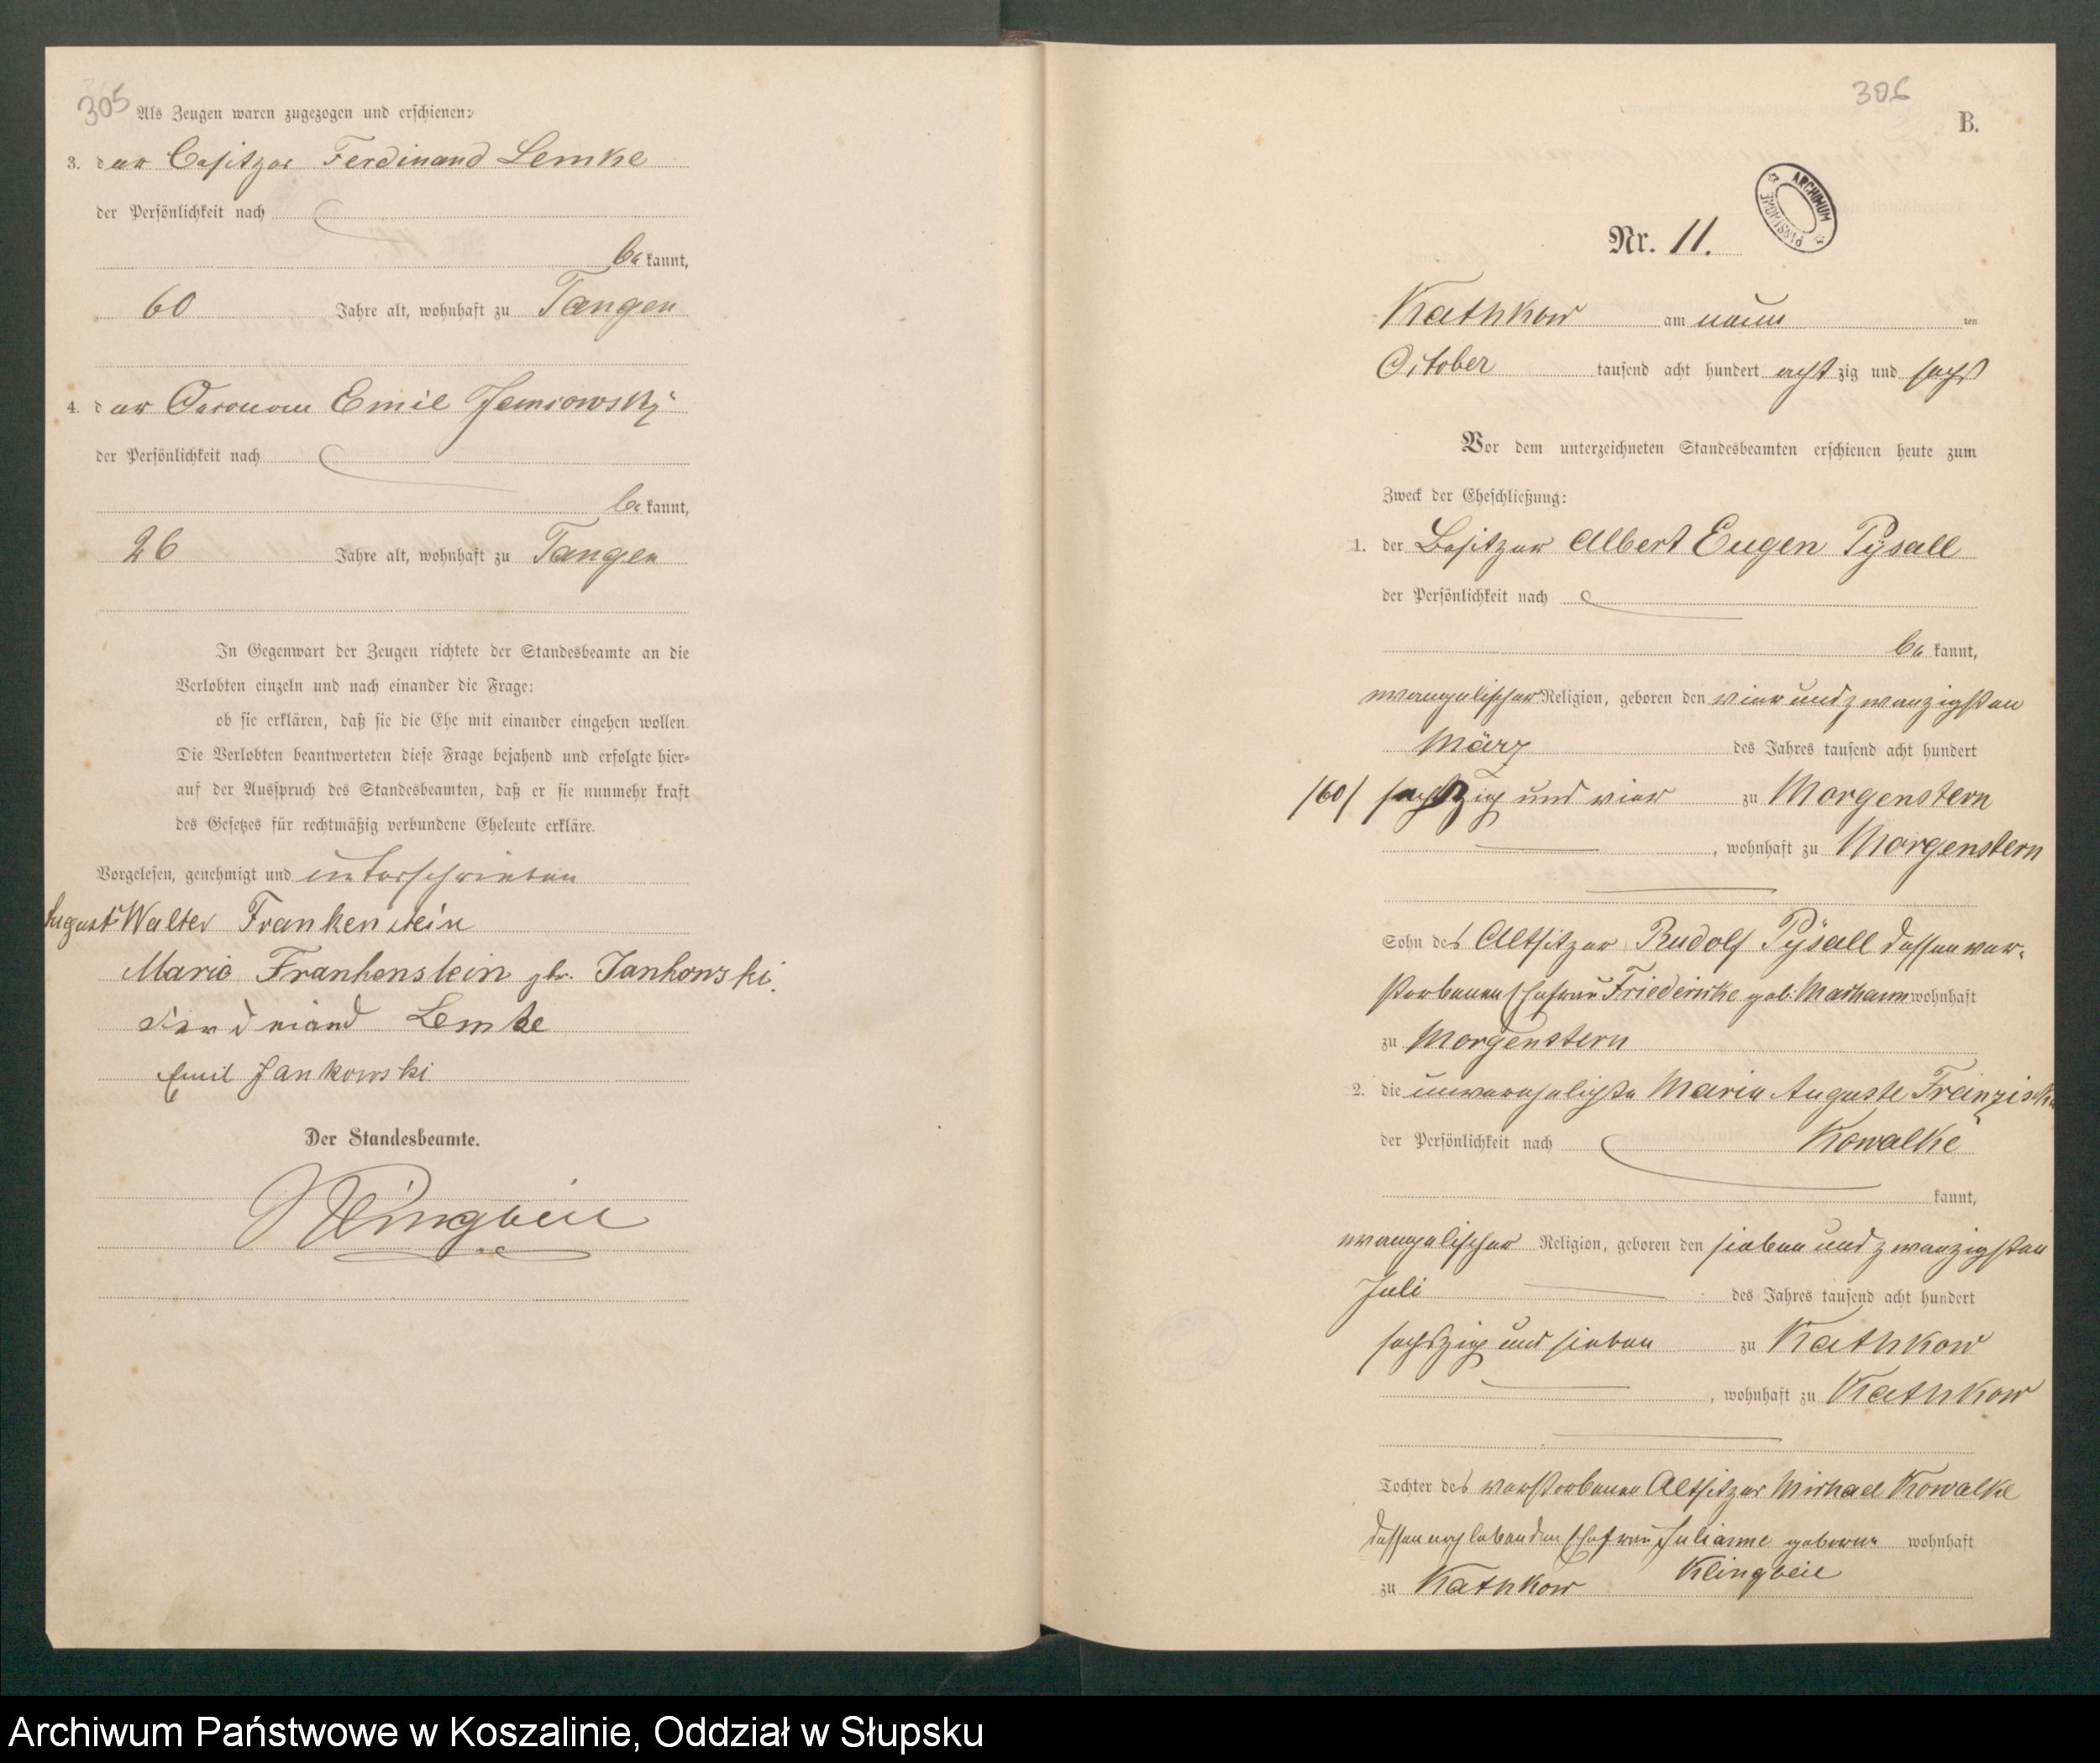 305
Als Zeugen waren zugezogen und erschienen:
3. der Besitzer Ferdinand Lemke
der Persönlichkeit nach
be kannt,
60 Jahre alt, wohnhaft zu Tangen
4. der Oeconom Emil
der Persönlichkeit nach
be kannt,
26 Jahre alt, wohnhaft zu Tangen
In Gegenwart der Zeugen richtete der Standesbeamte an die
Verlobten einzeln und nach einander die Frage:
ob sie erklären, daß sie die Ehe mit einander eingehen wollen.
Die Verlobten beantworteten diese Frage bejahend und erfolgte hier-
auf der Ausspruch des Standesbeamten, daß er sie nunmehr kraft
des Gesetzes für rechtmäßig verbundene Eheleute erkläre.
Vorgelesen, genehmigt und unterschrieben
August Walter Frankenstein
Marie Frankenstein gb. Jankowski.
Ferdinand Lemke
Emil Jankowski
Der Standesbeamte.
Klingbeil
306
B.
ARCHIWUM PAŃSTWOWE
Nr. 11.
Kathkow am neun ten
October tausend acht hundert acht zig und sechs
Vor dem unterzeichneten Standesbeamten erschienen heute zum
Zweck der Eheschließung:
1. der Besitzer Albert Eugen Pÿsall
der Persönlichkeit nach
be kannt,
evangelischer Religion, geboren den vier und zwanzigsten
März des Jahres tausend acht hundert
/60/ sechszig und vier zu Morgenstern
, wohnhaft zu Morgenstern
Sohn des Altsitzer Rudolf Pÿsall dessen ver-
storbenen Ehefrau Friedericke geb: wohnhaft
zu Morgenstern
2. die unverehelichte Maria Auguste Franziska
der Persönlichkeit nach Kowalke
kannt,
evangelischer Religion, geboren den sieben und zwanzigsten
Juli des Jahres tausend acht hundert
sechszig und sieben zu Kathkow
, wohnhaft zu Kathkow
Tochter des verstorbenen Altsitzer Michael Kowalke
dessen noch lebenden Ehefrau Julianne geborene wohnhaft
zu Kathkow Klingbeil
Archiwum Państwowe w Koszalinie, Oddział w Słupsku